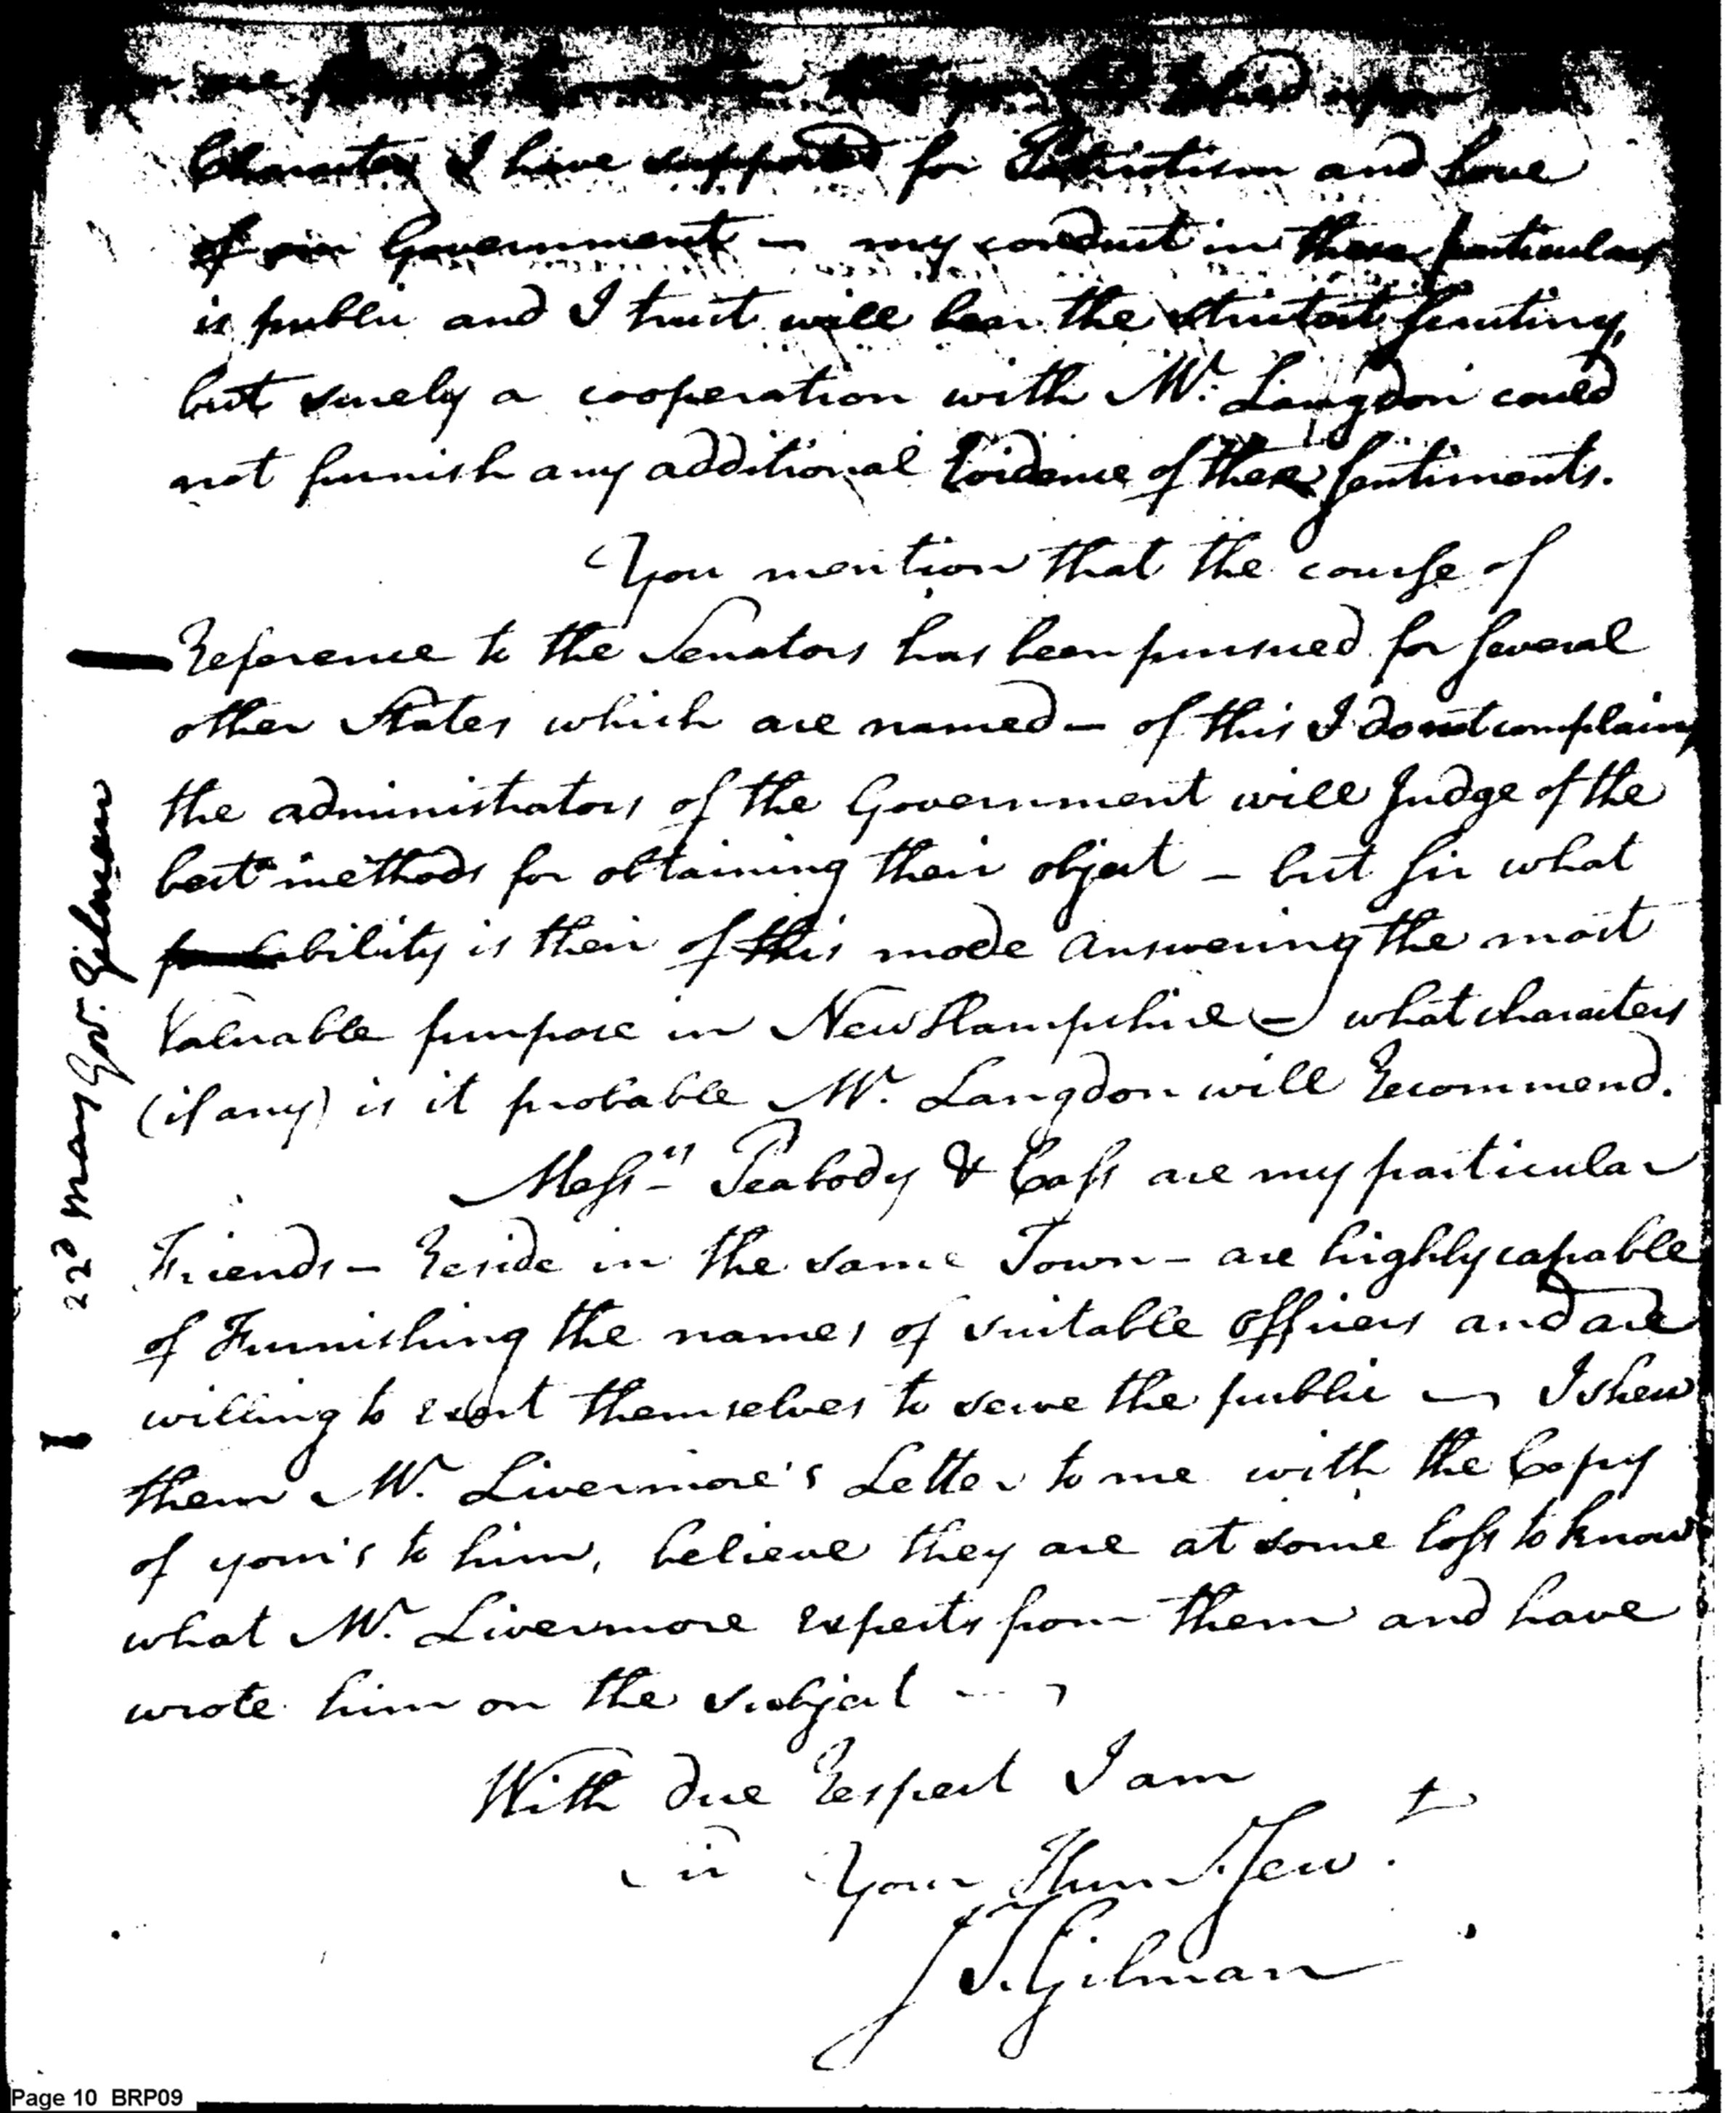 Character I have supported for Patriotism and Love
of our Government - my conduct in these particulars
is public and I trust will bear the strictest scrutiny,
but surely a cooperation with Mr. Langdon could
not furnish any additional Evidence of these sentiments.
You mention that the course of
Reference to the Senators has been pursued for several
other States which are named - of this I do not complain,
the administrators of the Government will Judge of the
best methods for obtaining their object - but sir what
probability is their of this mode answering the most
Valuable purpose in New Hampshire - what characters
(if any) is it probable Mr. Langdon will Recommend.
Messrs Peabody & Cass are my particular
Friends - Reside in the same Town - are highly capable
of Furnishing the names of suitable officers and are
willing to exert themselves to serve the public - I shew
them Mr. Livermore's Letter to me with the Copy
of your's to him, believe they are at some loss to know
what Mr. Livermore expects from them and have
wrote him on the subject -
With due Respect I am
Sir Your Hum Servt.
J T. Gilman
22d May Gov. Gilman
Page 10 BRP09